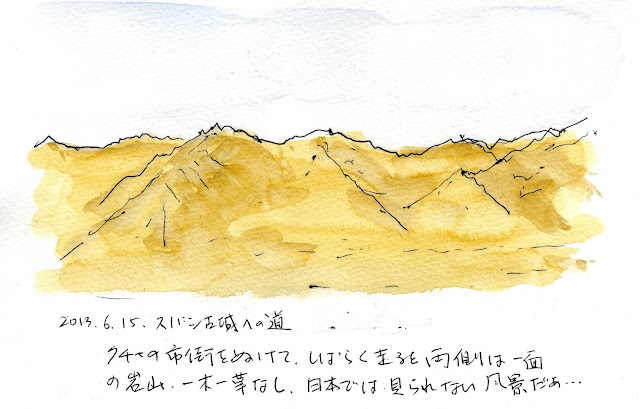 2013.6.15. スバシ古城への道
クチャの市街をぬけて、しばらく走ると両側は一面
の岩山、一木一草なし、日本では見られない風景だぁ…